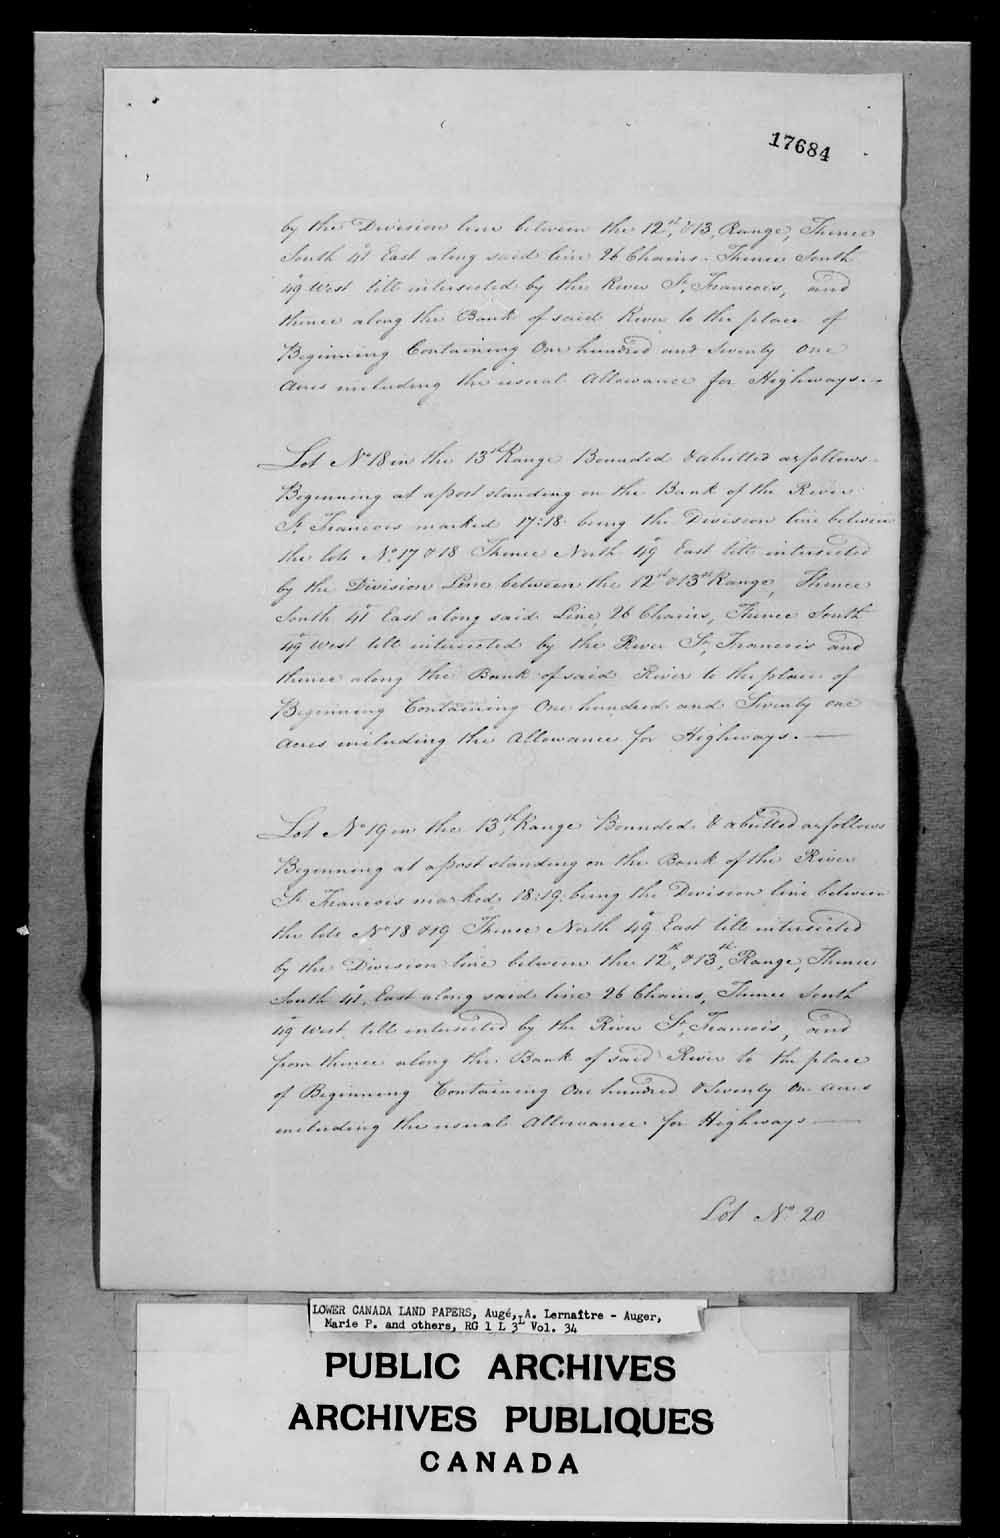 17684
by the Division line between the 12th, & 13, Range, Thence
South 41° East along said line 26 Chains. Thence South
49 West till intersected by the River St. Francois, and
thence along the Bank of said River to the place of
Beginning Containing One hundred and Seventy One
Acres including the usual Allowance for Highways.
Lot No 18 in the 13th Range Bounded & abutted as follows.
Beginning at a post standing on the Bank of the River
St. Francois marked 17:18: being the Division line between
the lots No. 17 & 18 Thence North 49 East till intersected
by the Division Line between the 12th & 13th Range, Thence
South 41° East along said Line, 26 Chains, Thence South
49 West till intersected by the River St. Francois and
thence along the Bank of said River to the place of
Beginning Containing One hundred and Seventy one
Acres including the Allowance for Highways.
Lot No 19 in the 13th, Range Bounded & abutted as follows
Beginning at a post standing on the Bank of the River
St. Francois marked 18:19: being the Division line between
the lots No 18 & 19 Thence North 49 East till intersected
by the Division line between the 12th, & 13th, Range, Thence
South 41, East along said line 26 Chains, Thence South
49 West, till intersected by the River St. Francois, and
from thence along the Bank of said River to the place
of Beginning Containing One hundred & Seventy One acres
including the usual Allowance for Highways
Lot No. 20
LOWER CANADA LAND PAPERS, Augé, A. Lernaître - Auger,
Marie P. and others, RG 1 L 3L Vol. 34
PUBLIC ARCHIVES
ARCHIVES PUBLIQUES
CANADA